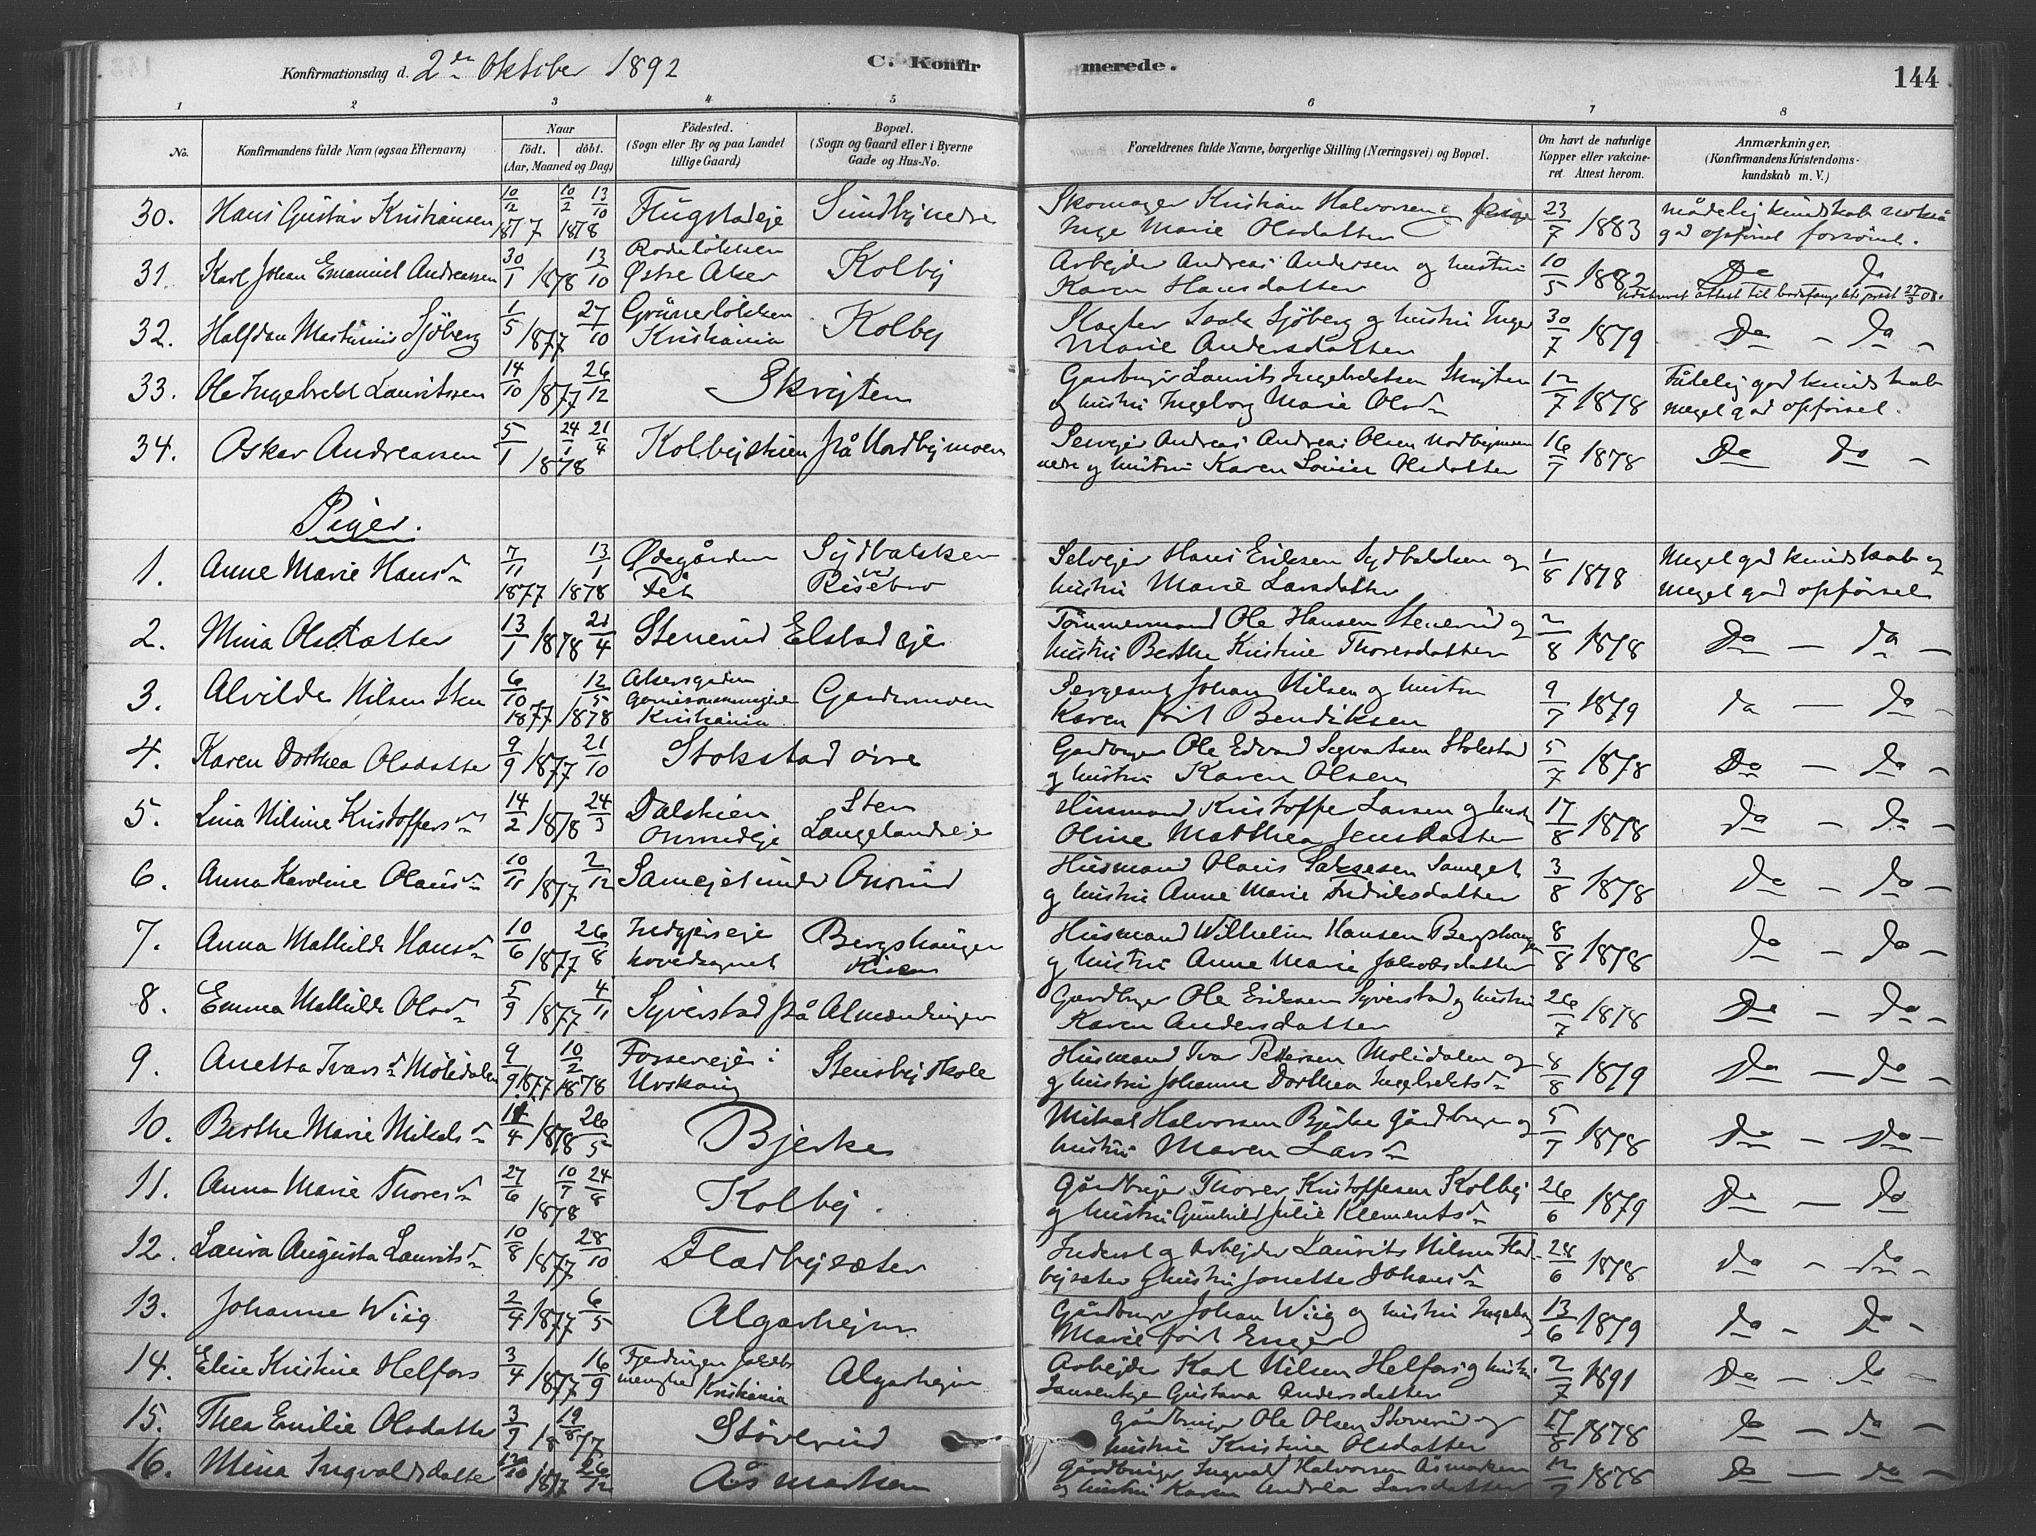 Konfirmationsdag d. 2den Oktober 1892
C. Konfirmerede.
144
1 2 3 4 5 6 7 8
No. Konfirmandens fulde Navn (ogsaa Efternavn) Naar födt. döbt. (Aar, Maaned og Dag) Födested. (Sogn eller By og paa Landet tillige Gaard) Bopæl. (Sogn og Gaard eller i Byerne Gade og Hus-No. Forældrenes fulde Navne, borgerlige Stilling (Næringsvei) og Bopæl. Om havt de naturlige Kopper eller vakcineret. Attest herom. Anmærkninger. (Konfirmandens Kristendomskundskab m. V.)
30. Hans Gustav Kristiansen 10/12 1877 10/2 13/10 1878 Flugstadeje Sundby nedre Skomager Kristian Halvorsen
Inge Marie Olsdatter 23/7 1883 mådelig kundskab
god opførsel
31. Karl Johan Emanuel Andreassen 30/1 1878 13/10 Rodeløkken
Østre Aker Kolby Arbejder Andreas Andersen og hustru
Karen Hansdatter 10/5 1882 Do Do
32. Halfdan Martinius Sjöberg 1/5 1877 27/10 Grünerløkken
Kristiania Kolby Isak Sjöberg og hustru Inger
Marie Andersdatter 30/7 1879 Do - Do -
33. Ole Ingebrekt Lauritssen 14/10 1877 26/12 Skrijten Gårdbruger Laurits Ingebrektsen Skrijten
og hustru Ingeborg Marie Olsd. 12/7 1878 Tålelig god kundskab
meget god opførsel.
34. Oskar Andreassen 5/1 1878 24/1 21/4 Kolbystuen på Nordbymoen Selvejer Andreas Olsen Nordbymoen
nedre og hustru Karen Lovise Olsdatter 16/7 1878 Do Do -
Piger.
1. Anne Marie Hansd. 7/11 1877 13/1 1878 Ødegården
Fet Sydbakken
ved
Risebro Selvejer Hans Eriksen Sydbakken og
hustru Marie Larsdatter 1/8 1878 Meget god kundskab og
meget god opførsel
2. Mina Olsdatter 13/1 1878 21/4 Stenerud Elstad eje Tømmermand Ole Hansen Stenerud og
hustru Berthe Kristine Thoresdatter 2/8 1878 Do - Do -
3. Alvilde Nilsen Sten 6/10 1877 12/5 1878 Akersgaden
Garnisonsmenighed
Kristiania Gardermoen Sergeant Johan Nilsen og hustru
Karen født Bendiksen 9/7 1879 Do - Do -
4. Karen Dorthea Olsdatter 9/9 1877 21/10 Stokstad övre Gardbruger Ole Edvard Sigvartsen Stokstad
og hustru Karen Olsen 5/7 1878 Do - Do -
5. Lina Nilsine Kristoffersd. 14/2 1878 24/3 Dalstuen
Onsrudeje Sten
Langelandseje Husmand Kristoffer Larsen og hustru
Oline Matthea Jensdatter 17/8 1878 Do - Do -
6. Anna Karoline Olausd. 10/11 1877 2/12 Samejet under Onsrud Husmand Olaus Saksesen Samejet
og hustru Anne Marie Fredriksdatter 3/8 1878 Do - Do -
7. Anna Mathilde Hansd. 10/6 1877 26/8 Indgjerseje
hovedsognet Bergshaugen
Risen Husmand Wilhelm Hansen Bergshaugen
og hustru Anne Marie Jakobsdatter 8/8 1878 Do - Do -
8. Emma Mathilde Olsd. 5/9 1877 4/11 Syverstad på Almendingen Gardbruger Ole Eriksen Syverstad og hustru
Karen Andersdatter 26/7 1878 Do - Do -
9. Anetta Ivarsd. Molidalen 9/9 1877 10/2 1878 Fosseveje i
Urskoug Stensby Skole Husmand Ivar Pettersen Molidalen og
og hustru Johanne Dorthea Ingebretsd. 8/8 1879 Do - Do -
10. Berthe Marie Mikelsd. 11/4 1878 26/5 Bjerke Mikal Halvorsen Bjerke Gårdbruger og
hustru Maren Larsd. 5/7 1878 Do - Do -
11. Anna Marie Thoresd. 27/6 10/7 24/8 1878 Kolby. Gårdbruger Thorer Kristoffersen Kolby
og hustru Gunhild Julie Klementsd. 26/6 1879 Do - Do
12. Laura Augusta Lauritsd. 10/8 1877 28/10 Fladbysæter Inderst og Arbejder Laurits Nilsen Fladbysæter
og hustru Jonette Johansd. 28/6 1878 Do - Do -
13. Johanne Wiig 2/4 1877 6/5 Algarhejm Gårdbruger Johan Wiig og hustru Ingeborg
Marie født Enger 13/6 1879 Do - Do -
14. Elise Kristine Helfors 3/4 1877 16/9 Fjerdingen Jakobs
menighed Kristiania Algarhejm Arbejder Karl Nilsen Helfors og hustru
Gustava Andersdatter 2/7 1891 Do - Do -
15. Thea Emilie Olsdatter 3/9 19/8 1877 Støverud Gårdbruger Ole Olsen Støverud og
hustru Kristine Olsdatter 17/8 1878 Do - Do -
16. Mina Ingvaldsdatter 12/10 1877 26/12 Åsmarken Gårdbruger Ingvald Halvorsen Åsmarken
og hustru Karen Andrea Larsdatter 12/7 1878 Do - Do -